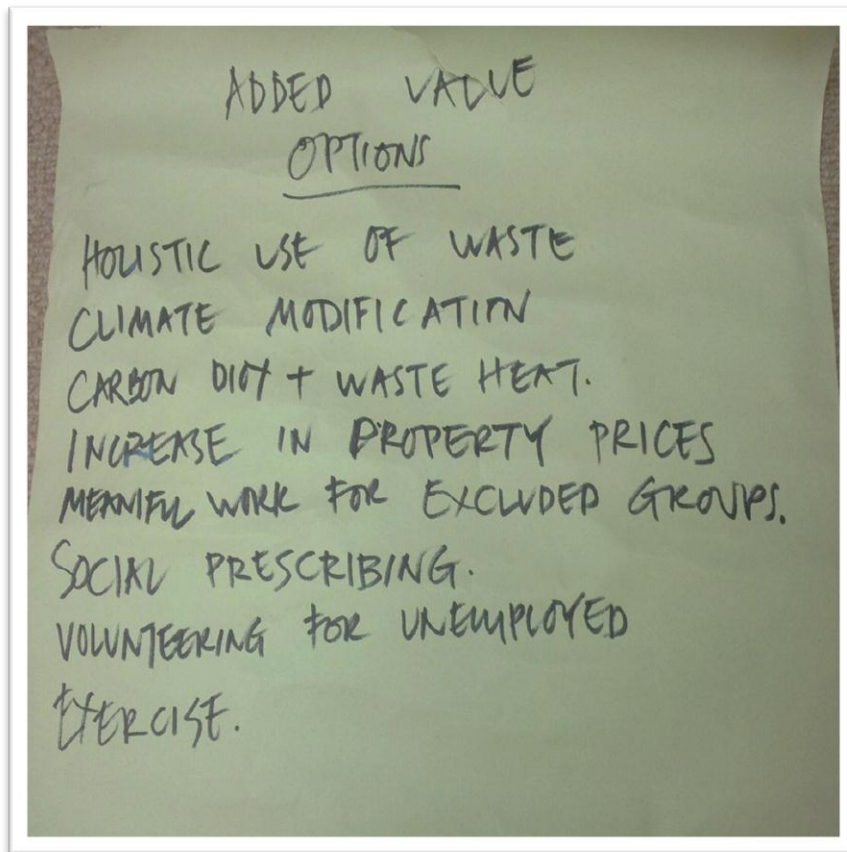 ADDED VALUE
OPTIONS
HOLISTIC USE OF WASTE
CLIMATE MODIFICATION
CARBON DIOX + WASTE HEAT.
INCREASE IN PROPERTY PRICES
MEANIFUL WORK FOR EXCLUDED GROUPS.
SOCIAL PRESCRIBING.
VOLUNTEERING FOR UNEMPLOYED
EXERCISE.